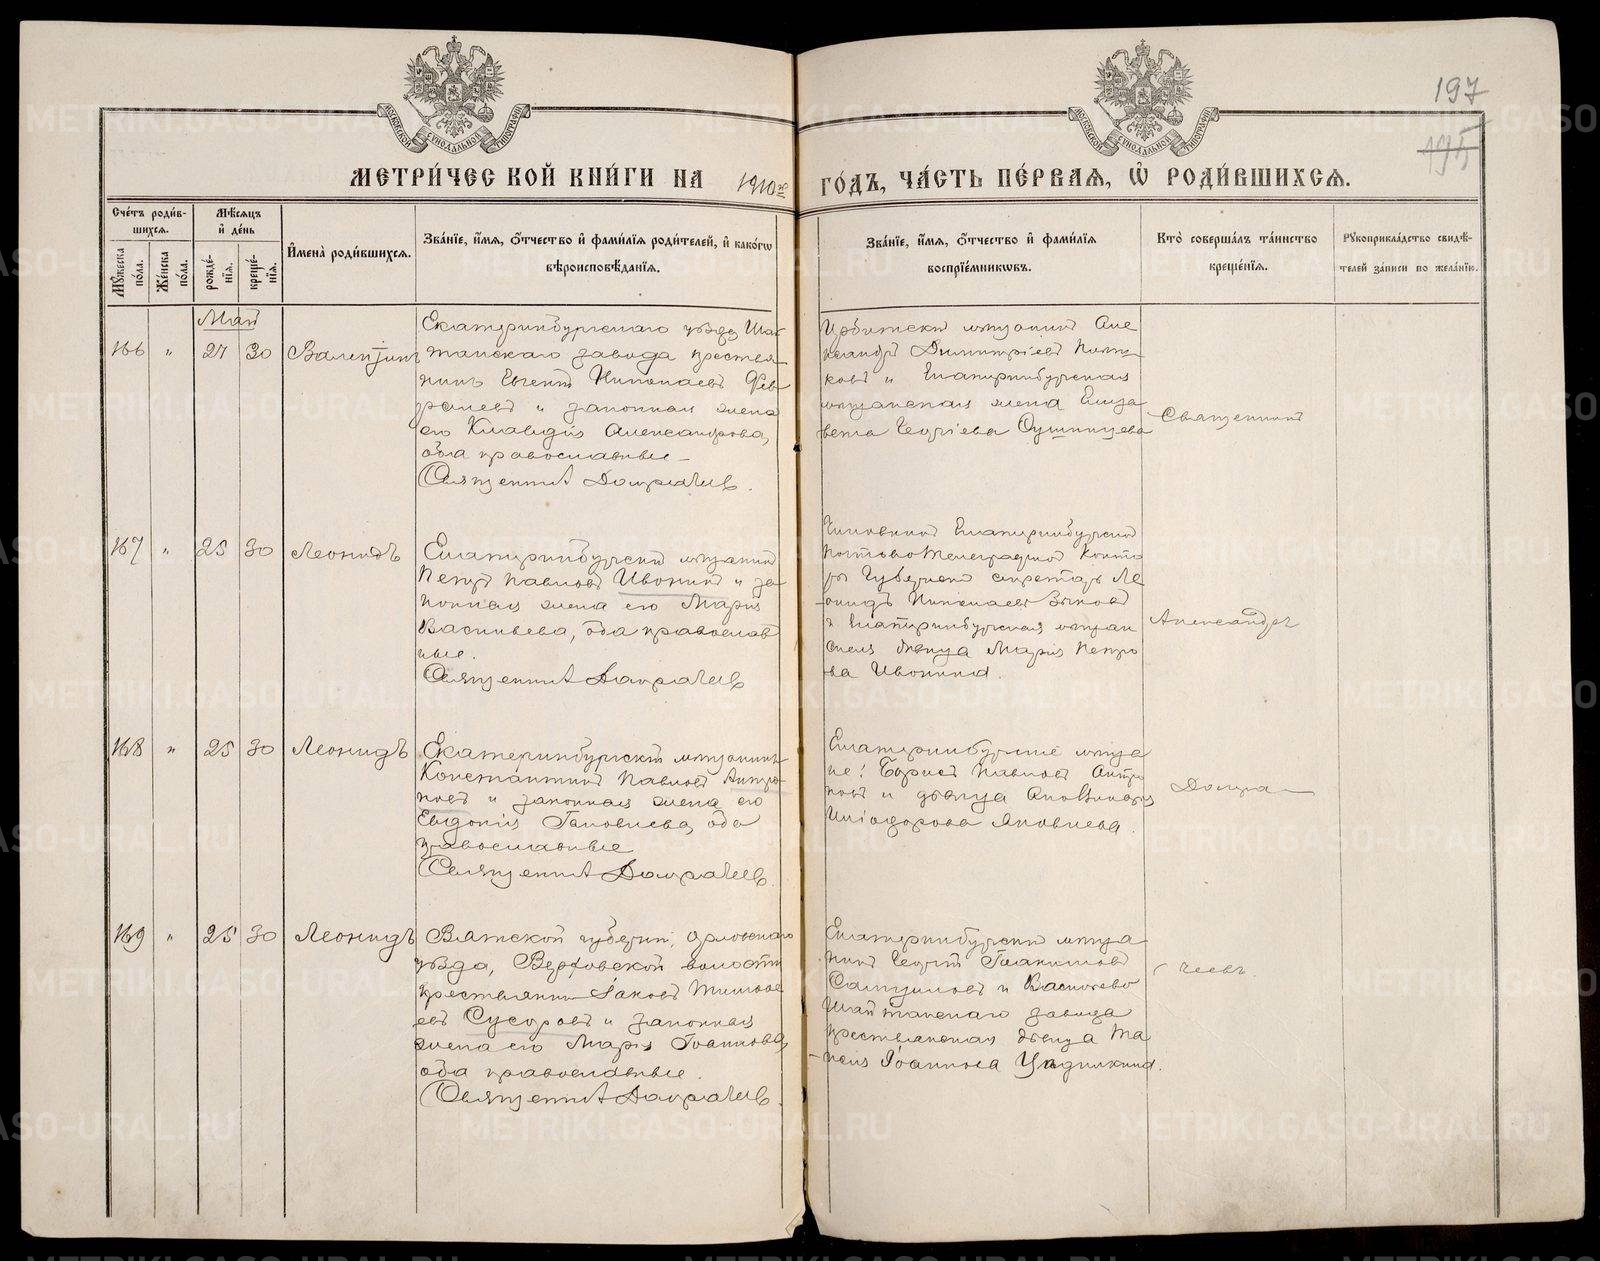 197
195
МЕТРИ́ЧЕСКОЙ КНИ́ГИ НА 1910й ГО́ДЪ, ЧА́СТЬ ПЕ́РВАЯ, Ѽ РОДИ́ВШИХСЯ.
Сче́тъ роди́в-
шихся.
Мꙋ́жеска по́ла.
Же́нска по́ла.
Мѣ́сяцъ
и҆ де́нь
рожде́-
нїя.
креще́-
нїя.
И҆мена̀ роди́вшихся.
Зва́нїе, и҆́мя, ѻ҆́тчество и҆ фами́лїя роди́телей, и҆ како́гѡ
вѣроисповѣ́данїя.
Зва́нїе, и҆́мя, ѻ҆́тчество и҆ фами́лїя
воспрїе́мникѡвъ.
Кто̀ соверша́лъ та́инство
креще́нїя.
Рꙋкоприкла́дство свидѣ́-
телей за́писи по жела́нїю.
Май
166 " 27 30 Валентинъ
Екатеринбургскаго уѣзда Шай
танскаго завода крестья
нинъ Евгенiй Николаевъ Фев
ралевъ и законная жена
его Клавдiя Александрова,
оба православные
Священникъ Домрачевъ.
Ирбитскiй мѣщанинъ Але
ксандръ Димитрiевъ
ковъ и Екатеринбургская
мѣщанская жена Елиза
вета Георгiева
Священникъ
167 " 25 30 Леонидъ
Екатеринбургскiй мѣщанинъ
Петръ Павловъ Ивонинъ и за
конная жена его Марiя
Васильева, оба православ
ные.
Священникъ Домрачевъ
Чиновникъ Екатеринбургской
Почтово Телеграфной Конто
ры Губернскiй секретарь Ле
онидъ Николаевъ Зыковъ
и Екатеринбургская мѣщан
ская дѣвица Марiя Петро
ва Ивонина.
Александръ
168 " 25 30 Леонидъ
Екатеринбургскiй мѣщанинъ
Константинъ Павловъ Антро
повъ и законная жена его
Евдокiя Яковлева, оба
православные
Священникъ Домрачевъ.
Екатеринбургскiе мѣща
не: Борисъ Павловъ Антро
повъ и дѣвица Аполлинарiя
Илiодорова Яковлева.
Домра
169 " 25 30 Леонидъ
Вятской губернiи, Орловскаго
уѣзда, Верховской волости
крестьянинъ Iаковъ Тимофе
евъ Сусоровъ и законная
жена его Марiя Iоаннова,
оба православные.
Священникъ Домрачевъ.
Екатеринбургскiй мѣща
нинъ Георгiй
и Васильево
Шайтанскаго завода
крестьянская дѣвица Та
Iоаннова
чевъ.
METRIKI.GASO-URAL.RU